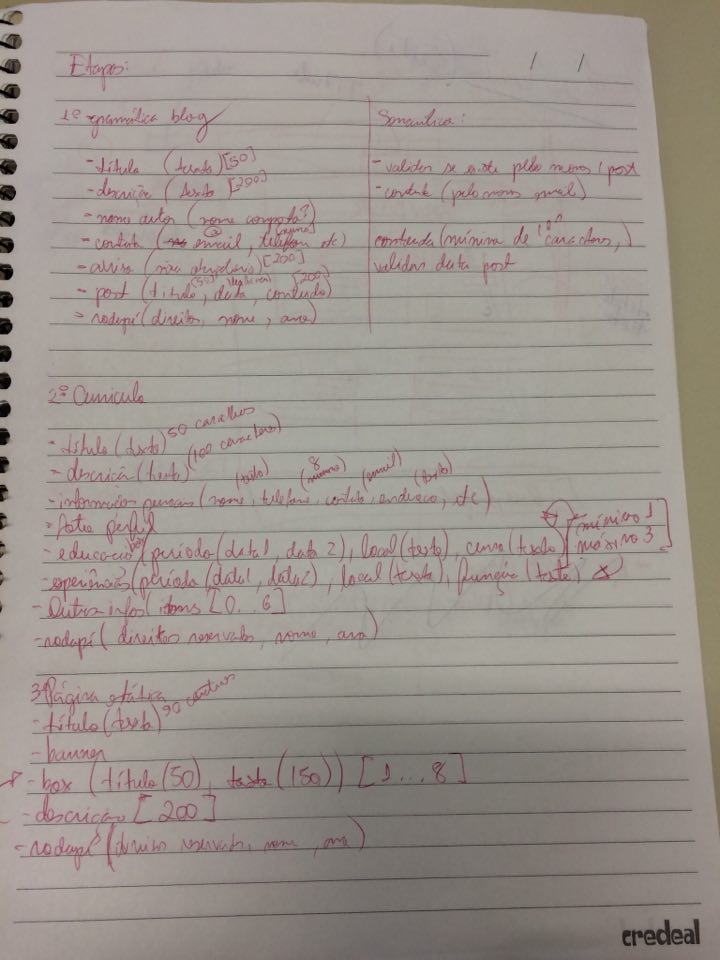 / /
Etapas:
1º gramática blog
- título (texto) [50]
- descrição (texto) [200]
- nome autor (nome composto?)
- contato (email, telefone, etc)
@
- aviso [200]
- post (título, data, conteúdo)
(50) [200]
- rodapé (direitos, nome, ano)
Semântica:
- validar se existe pelo menos 1 post
- contato (pelo menos email)
conteúdo (mínimo de 100 caracteres,)
validar data post
2º Curriculo
- título (texto) 50 caracteres
- descrição (texto) (100 caracteres)
(texto) 8 número (email) (texto)
- informações pessoais (nome, telefone, contato, endereço, etc)
- foto perfil
- educação (período (data1, data 2), local (texto), curso (texto) [mínimo 1
máximo 3]
- experiências (período (data1, data2), local (texto), função (texto)
- Outras infos (itens [0..6]
- rodapé (direitos reservados, nome, ano)
3º Página estática
- título (texto) 90
- banner
- box (título (50), texto (150)) [1...8]
- descrição [200]
- rodapé (direitos reservados, nome, ano)
credeal